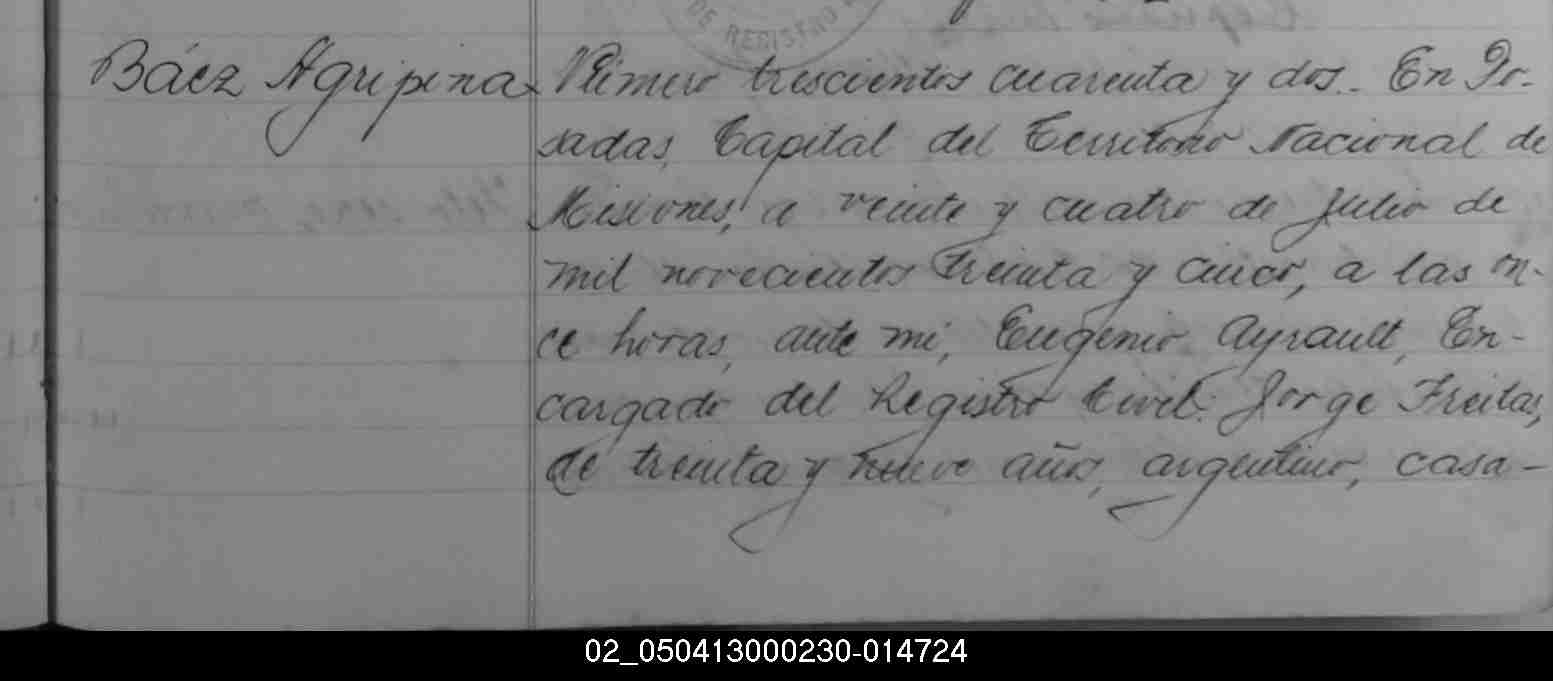 DE REGISTRO
Báez Agripina
Número trescientos cuarenta y dos. En Po-
sadas, Capital del Territorio Nacional de
Misiones, a veinte y cuatro de Julio de
mil novecientos treinta y cinco, a las on-
ce horas, ante mi, Eugenio Ayrault, En-
cargado del Registro Civil: Jorge Freitas,
de treinta y nueve años, argentino, casa-
02_050413000230-014724